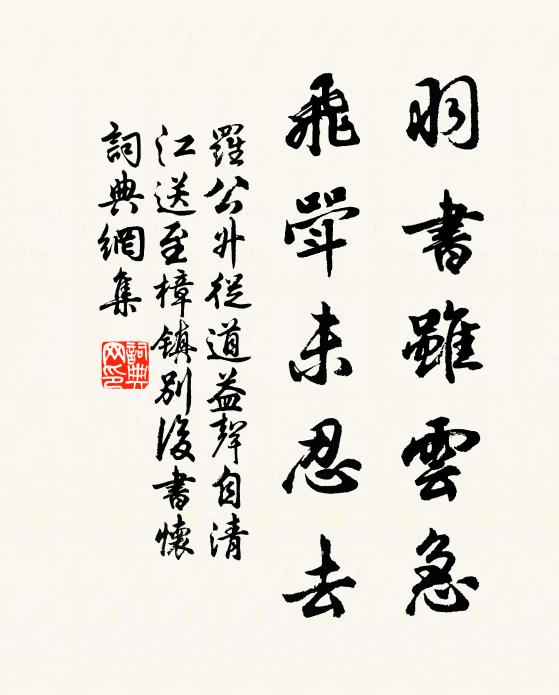 羽書雖雲急
飛斝未忍去
羅公升從道益聲自清
江送至樟鎮別後書懷
詞典網集
詞典
网印